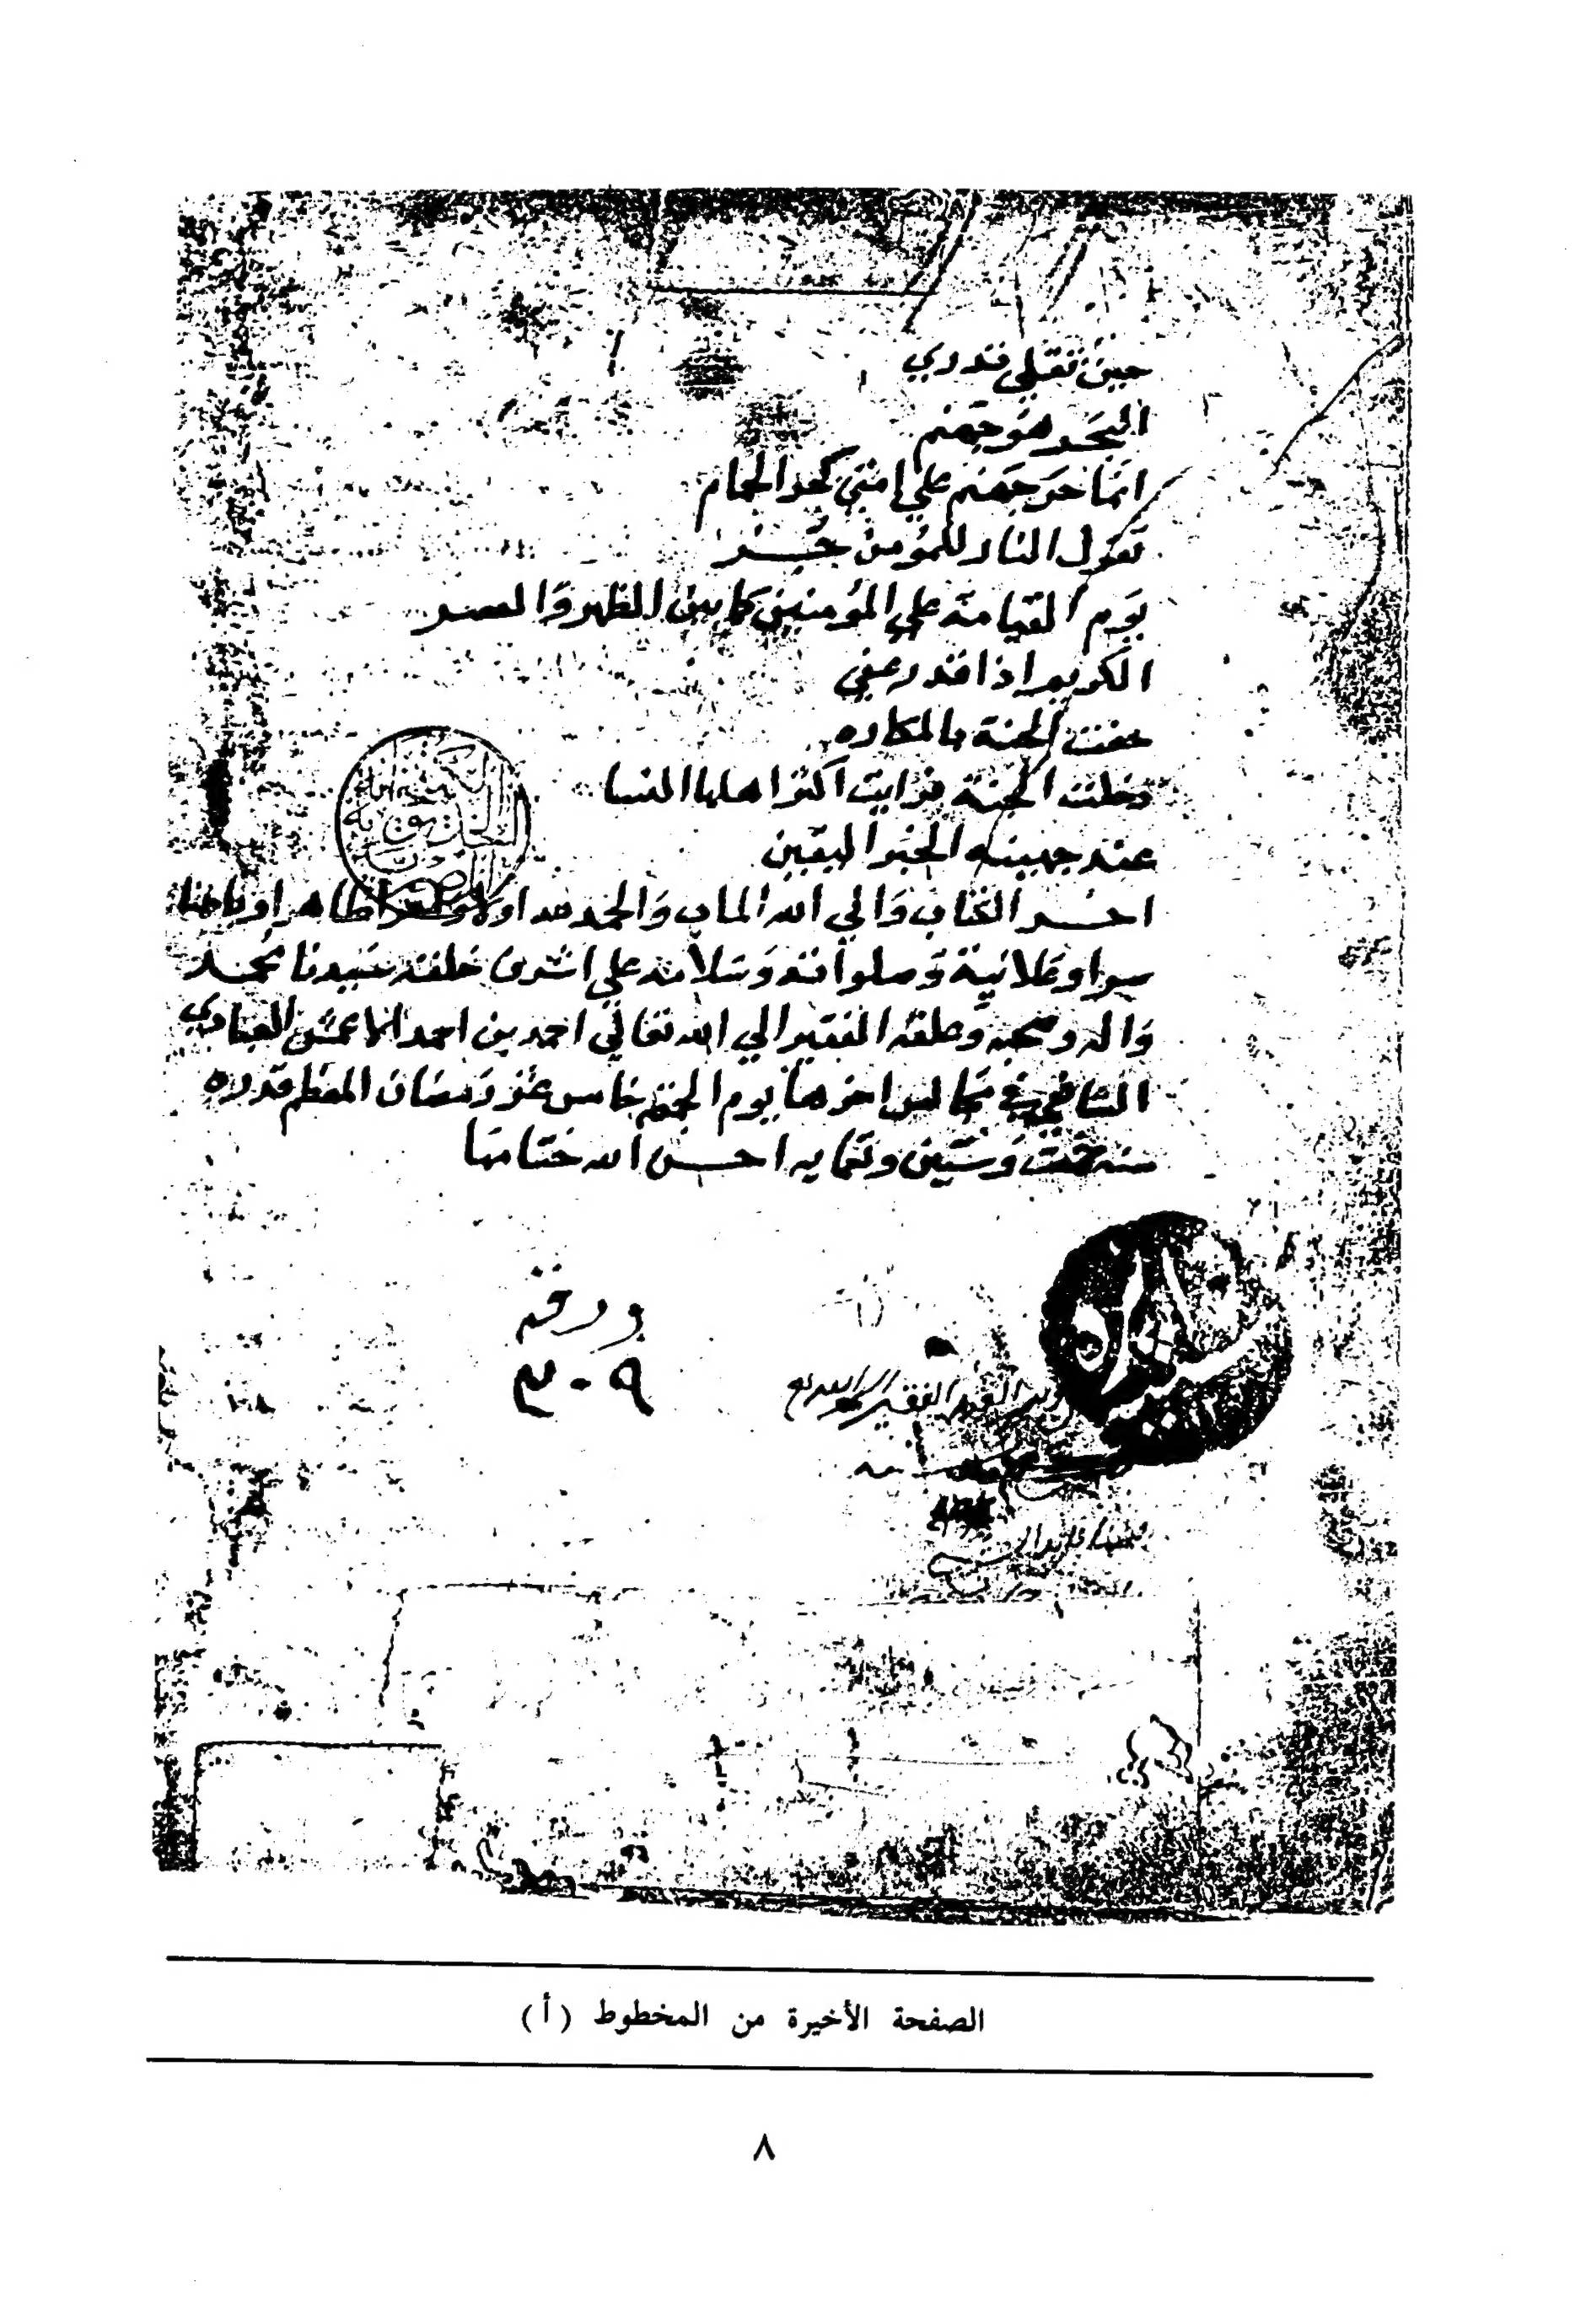 حين تقلي تدري
البحر هو جهنم
انما حر جهنم علي امتي كحر الحمام
تقول النار للمؤمن جز
يوم القيامة علي المؤمنين كما بين الظهر والعصر
الكريم اذا قدر عفي
حفت الجنة بالمكاره
دخلت الجنة فرايت اكثر اهلها النسا
عند جهينه الخبر اليقين
اخر الكتاب والي الله الماب والحمد لله اولا واخرا ظاهرا وباطنا
سرا وعلانية وصلواته وسلامه علي اشرف خلقه سيدنا محمد
واله وصحبه وعلقه الفقير الي الله تعالي احمد بن احمد الاعمش العبادي
الشافعي في مجالس اخرها يوم الجمعة خامس عشر رمضان المعظم قدره
سنه وستين وثمانمايه احسن الله ختامها
ورقه
٣٠٩
العبد الفقير الى الله
الصفحة الأخيرة من المخطوط (أ)
٨